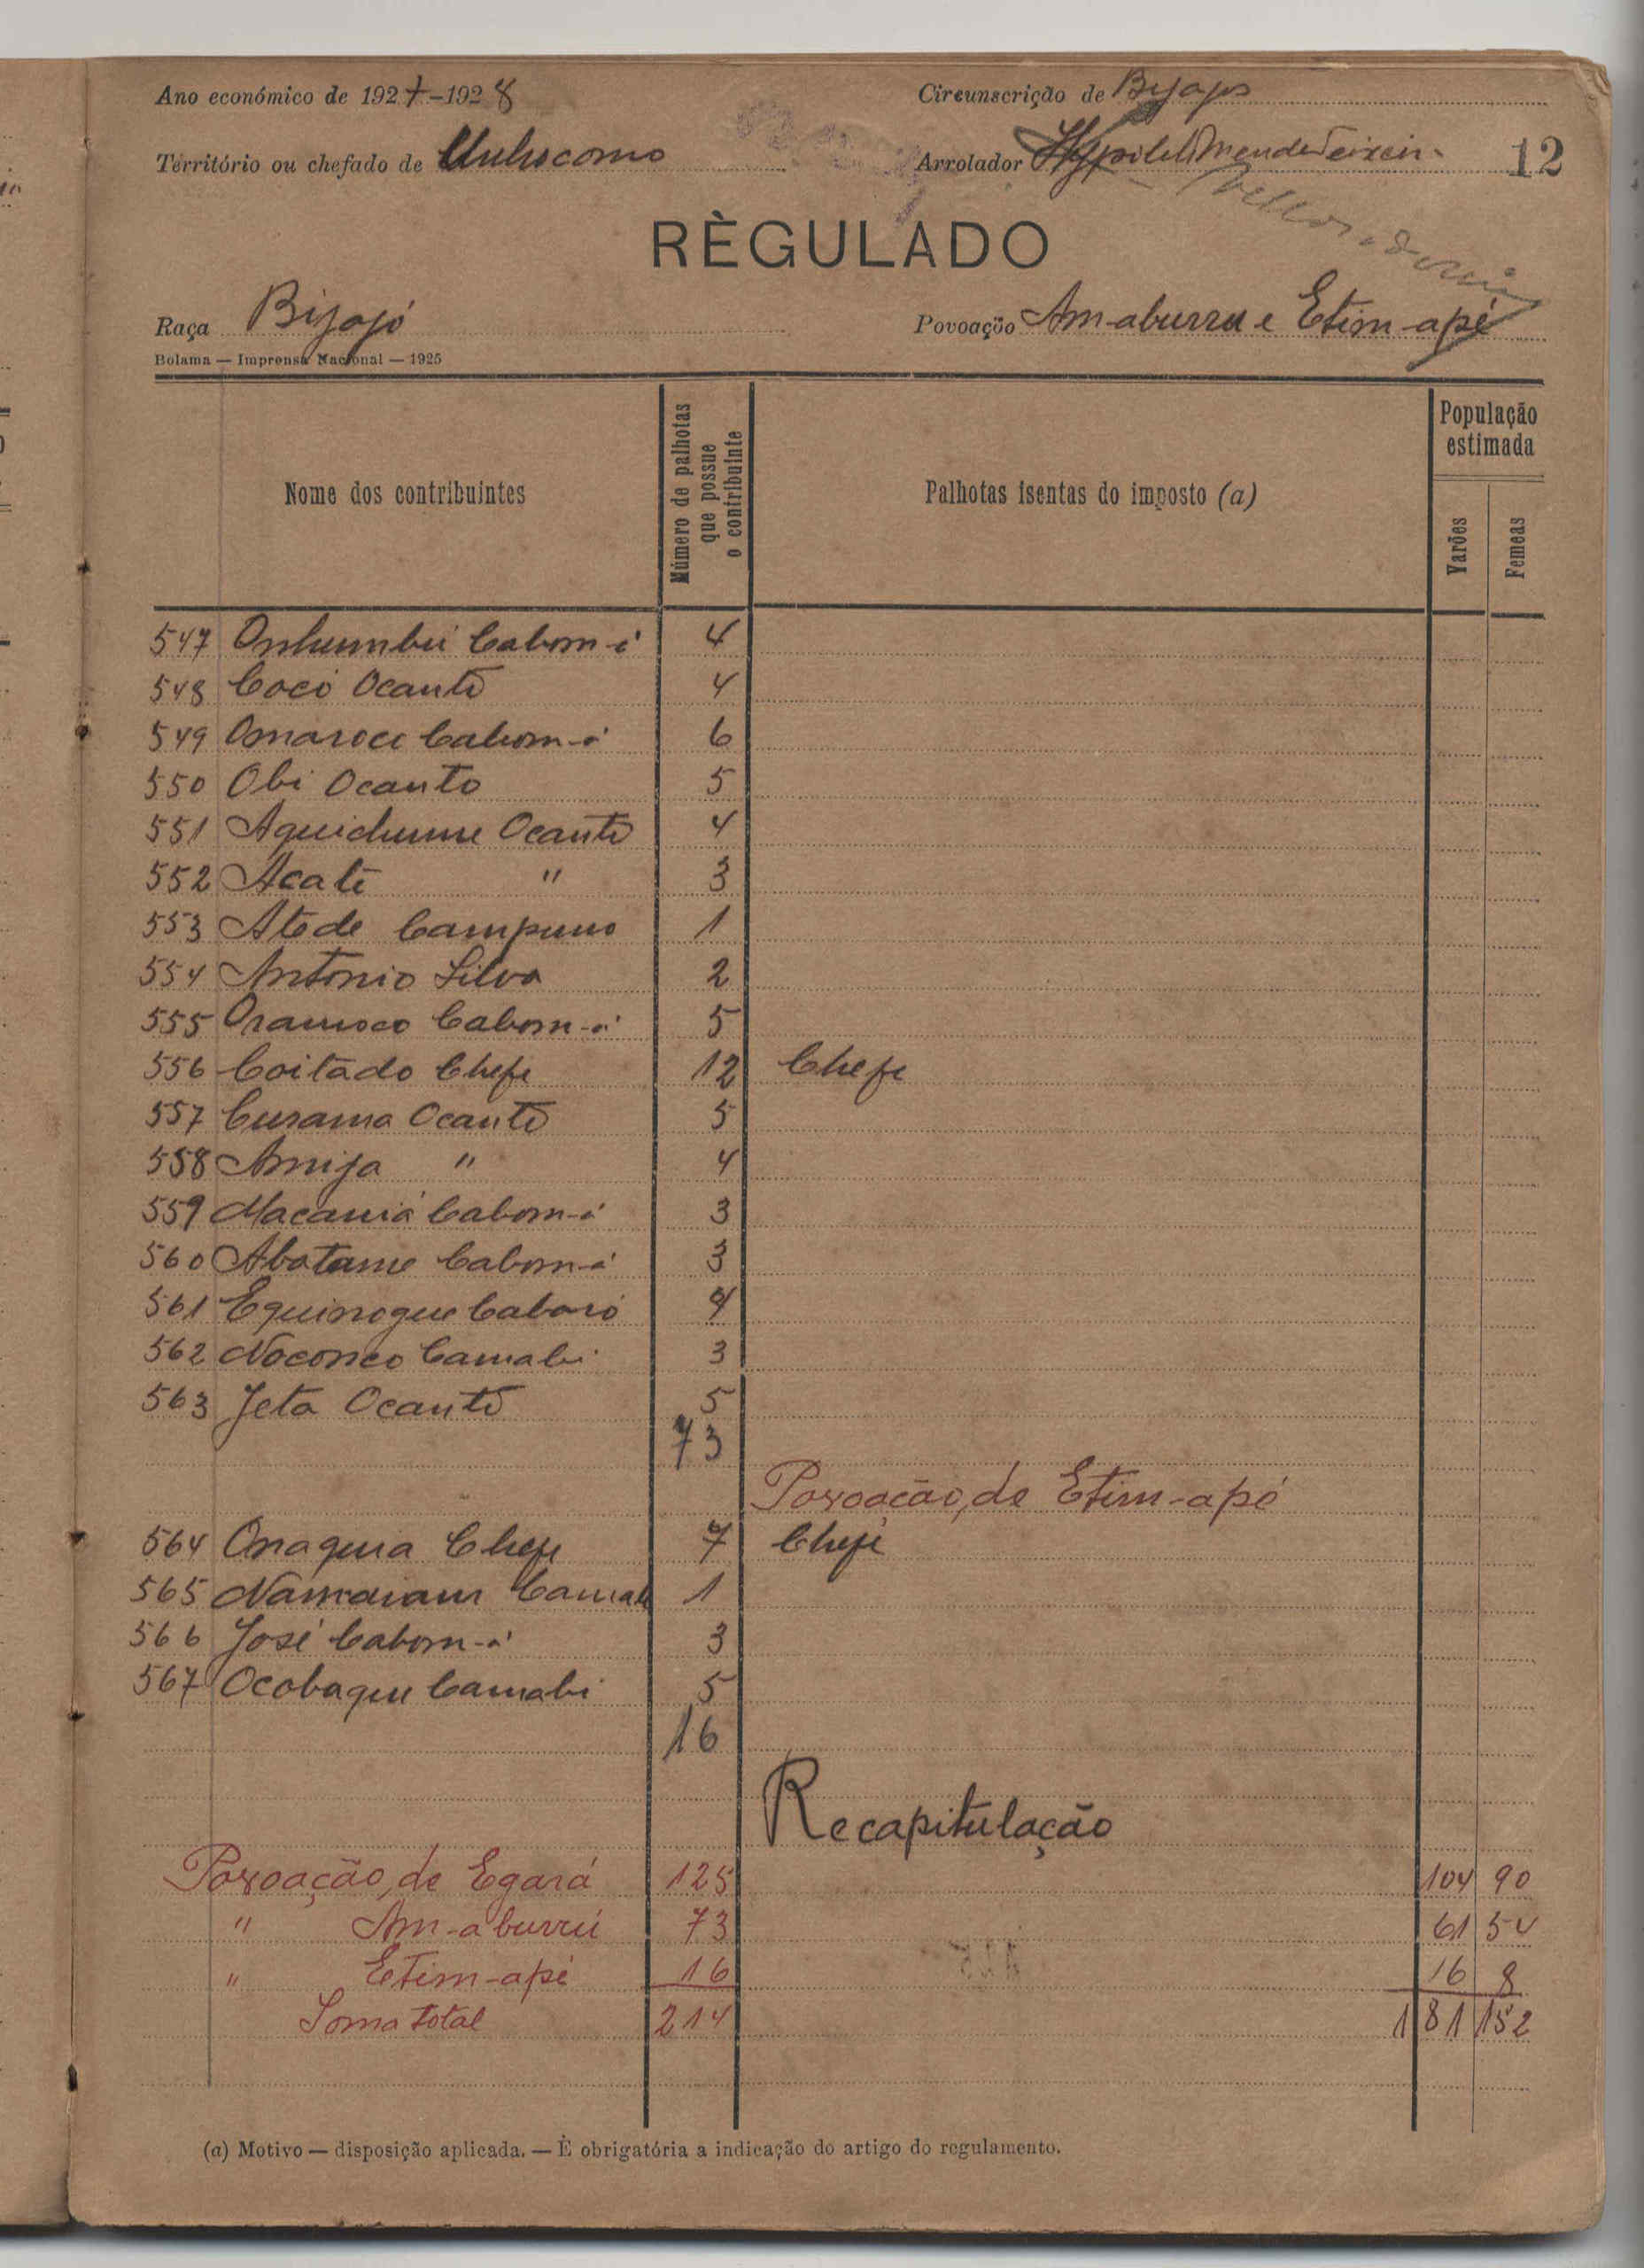 Ano económico de 1927-1928
Circunscrição de Bijagós
Território ou chefado de Unhocomo
Arrolador Mendes Teixeira
12
RÈGULADO
Raça Bijagó
Povoação Am-aburru e Etim-apé
Bolama — Imprensa Nacional — 1925
Nome dos contribuintes
Número de palhotas que possue o contribuinte
Palhotas isentas do imposto (a)
População estimada
Varões
Femeas
547 Onhumbú Cabom-á 4
548 Cocó Ocantó 4
549 Omaroce Cabom-á 6
550 Obi Ocanto 5
551 Aquichume Ocantó 4
552 Acate " 3
553 Atode Campuno 1
554 Antonio Silva 2
555 Oramoco Cabom-á 5
556 Coitado Chefe 12 Chefe
557 Curama Ocantó 5
558 Amija " 4
559 Macamá Cabom-á 3
560 Abotame Cabom-á 3
561 Equinoque Caboró 4
562 Noconco Camabi 3
563 Jeta Ocantó 5
73
Povoação de Etim-apé
564 Onagua Chefe 7 Chefe
565 Camabi 1
566 José Cabom-á 3
567 Ocobaque Camabi 5
16
Recapitulação
Povoação de Egará 125 104 90
" Am-aburrú 73 61 54
" Etim-apé 16 16 8
Soma total 214 181 152
(a) Motivo — disposição aplicada. — È obrigatória a indicação do artigo do regulamento.